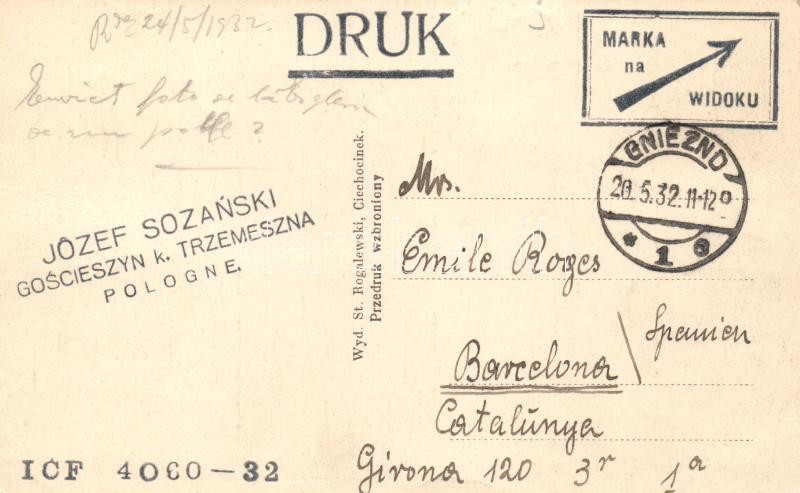 Rda 24/5/1932.
DRUK
MARKA
na
WIDOKU
foto
GNIEZNO
20.5.32.11-12⁰
* 1 a
JÓZEF SOZAŃSKI
GOŚCIESZYN k. TRZEMESZNA
POLOGNE.
Wyd. St. Rogalewski, Ciechocinek.
Przedruk wzbroniony
Mrs.
Emile Roges
Barcelona / Spanien
Catalúnya
Girona 120 3r 1a
ICF 4060-32